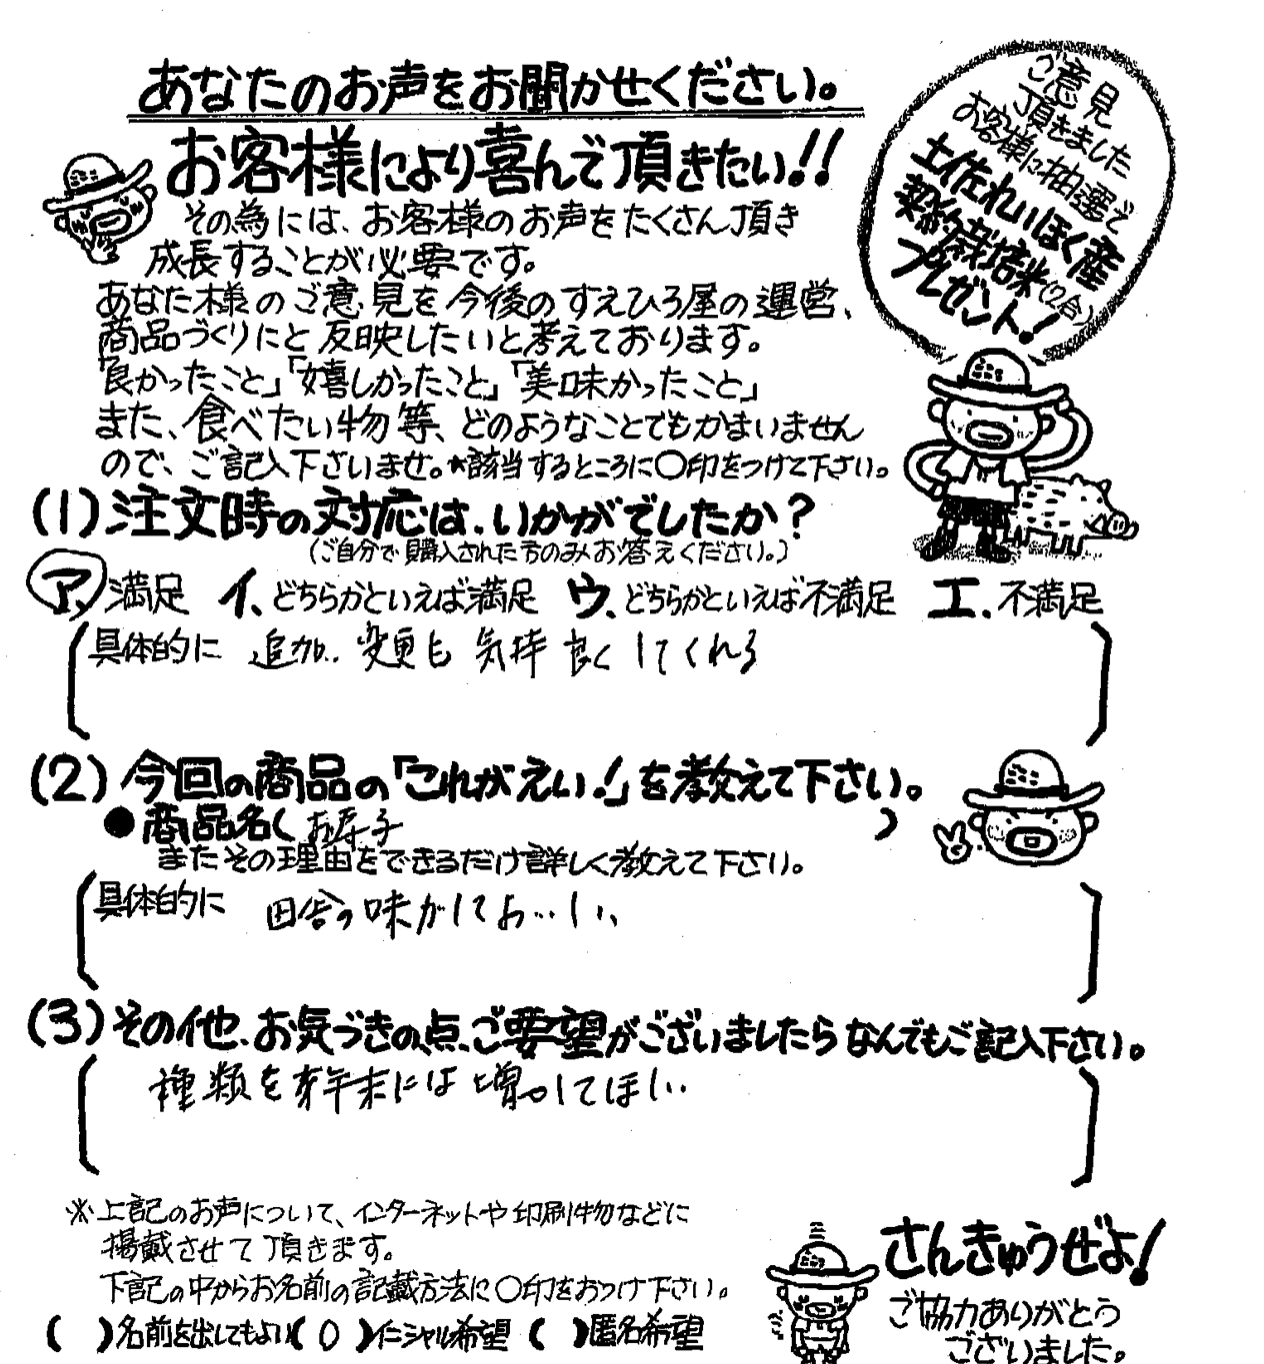 あなたのお声をお聞かせください。
お客様により喜んで頂きたい!!
その為には、お客様のお声をたくさん頂き
成長することが必要です。
あなた様のご意見を今後のすえひろ屋の運営、
商品づくりにと反映したいと考えております。
「良かったこと」「嬉しかったこと」「美味かったこと」
また、食べたい物等、どのようなことでもかまいません
ので、ご記入下さいませ。★該当するところに○印をつけて下さい。
ご意見
頂きました
お客様に抽選で
土佐れいほく産
契約栽培米(2合)
プレゼント!
(1)注文時の対応は、いかがでしたか?
(ご自分で購入された方のみお答えください。)
ア、満足 イ、どちらかといえば満足 ウ、どちらかといえば不満足 エ、不満足
具体的に 追加、変更も気持良くしてくれる
(2)今回の商品の「これがえい!」を教えて下さい。
●商品名( お寿子 )
またその理由をできるだけ詳しく教えて下さい。
具体的に 田舎の味がしておいしい、
(3)その他、お気づきの点、ご要望がございましたらなんでもご記入下さい。
種類を年末には増してほしい
※上記のお声について、インターネットや印刷物などに
掲載させて頂きます。
下記の中からお名前の記載方法に○印をおつけ下さい。
( )名前を出してもよい(○)イニシャル希望( )匿名希望
さんきゅうぜよ!
ご協力ありがとう
ございました。